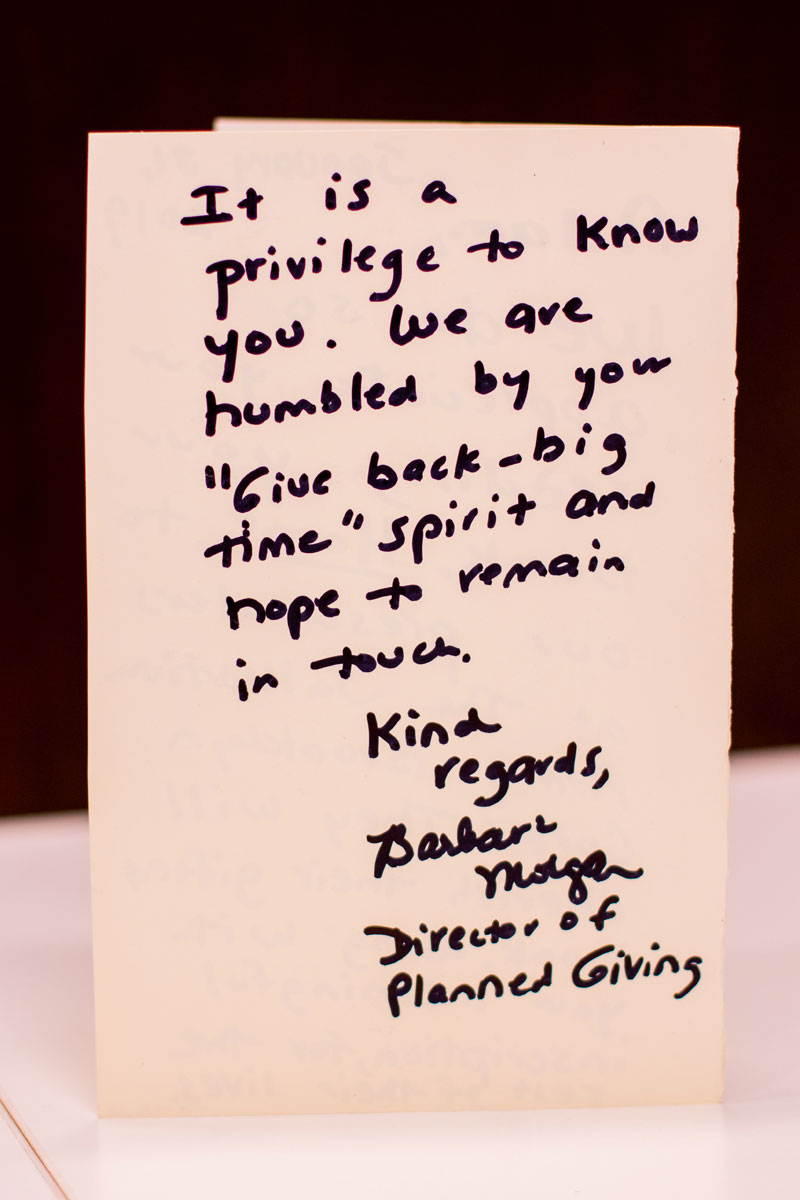 It is a
privilege to know
you. We are
humbled by your
"Give back - big
time" spirit and
hope to remain
in touch.
Kind
regards,
Barbara
Morgan
Director of
Planned Giving